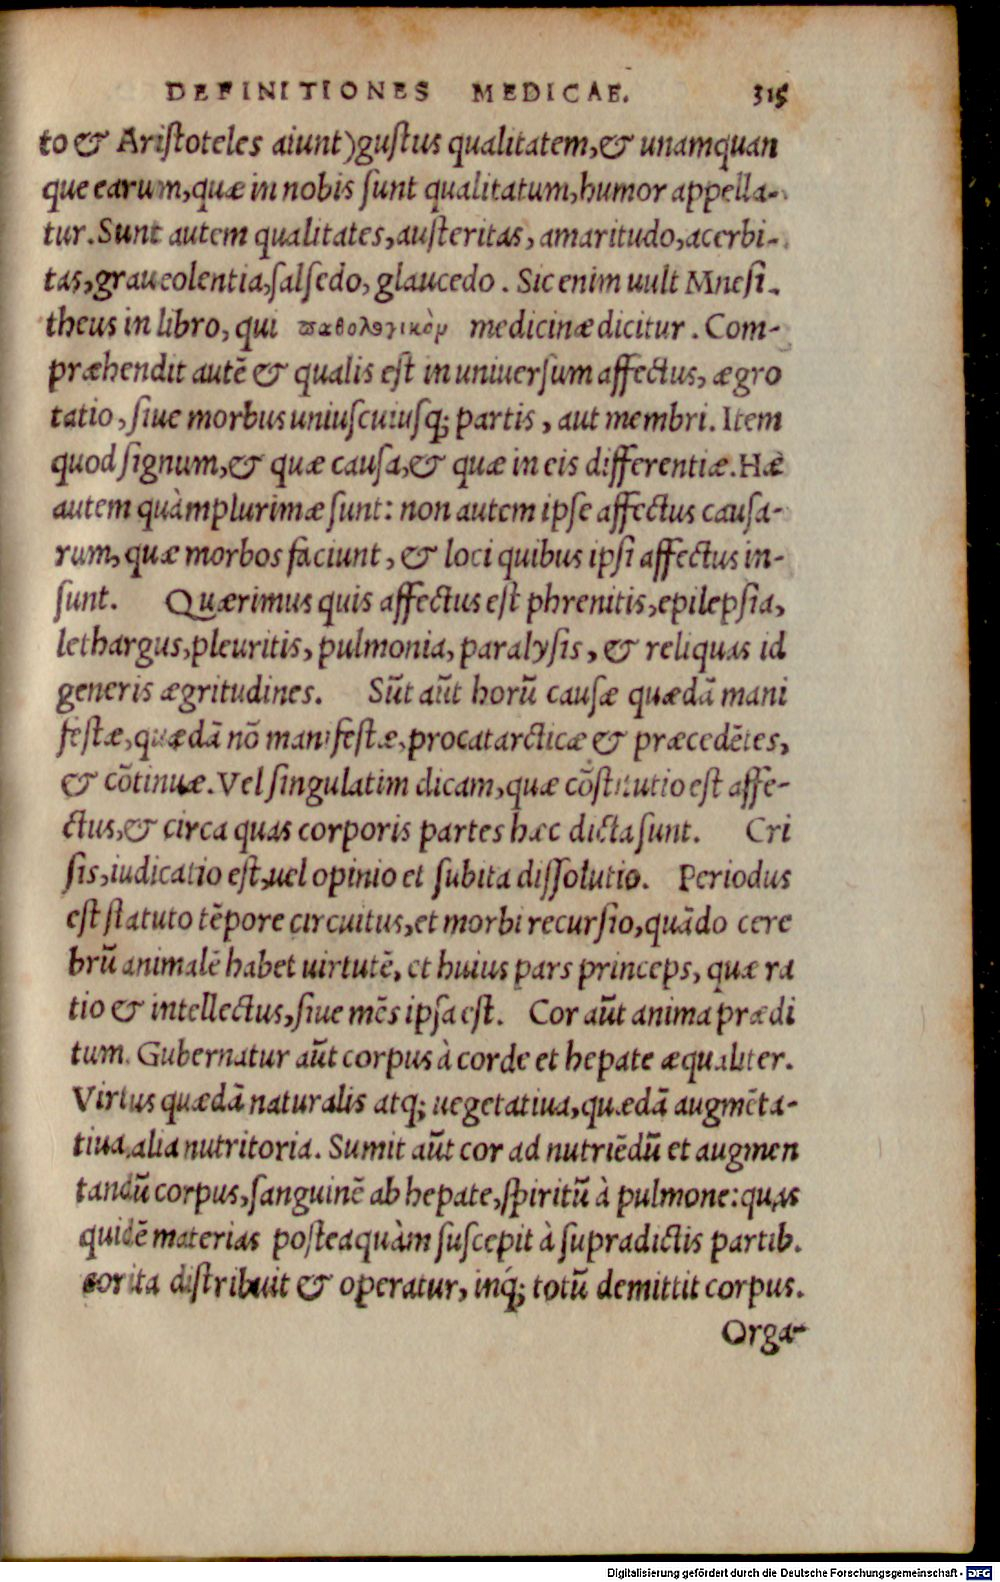 DEFINITIONES MEDICAE. 315
to & Ariſtoteles aiunt)guſtus qualitatem,& unamquan
que earum,quæ in nobis ſunt qualitatum,humor appella-
tur.Sunt autem qualitates,auſteritas, amaritudo,acerbi-
tas,graueolentia,ſalſedo, glaucedo. Sic enim uult Mneſi-
theus in libro, qui παθολογικὸν medicinæ dicitur. Com-
præhendit autē & qualis eſt in uniuerſum affectus, ægro
tatio, ſiue morbus uniuſcuiuſq; partis, aut membri. Item
quod ſignum,& quæ cauſa,& quæ in eis differentiæ.Hæ
autem quàmplurimæ ſunt: non autem ipſe affectus cauſa-
rum,quæ morbos faciunt, & loci quibus ipſi affectus in-
ſunt. Quærimus quis affectus eſt phrenitis,epilepſia,
lethargus,pleuritis, pulmonia, paralyſis, & reliquas id
generis ægritudines. Sūt aūt horū cauſæ quædā mani
feſtæ,quædā nō manifeſtæ,procatarcticæ & præcedētes,
& cōtinuæ.Vel ſingulatim dicam,quæ cōſtitutio eſt affe-
ctus,& circa quas corporis partes hæc dicta ſunt. Cri
ſis,iudicatio eſt,uel opinio et ſubita diſſolutio. Periodus
eſt ſtatuto tēpore circuitus,et morbi recurſio,quādo cere
brū animalē habet uirtutē, et huius pars princeps, quæ ra
tio & intellectus,ſiue mēs ipſa eſt. Cor aūt anima prædi
tum. Gubernatur aūt corpus à corde et hepate æqualiter.
Virtus quædā naturalis atq; uegetatiua,quædā augmēta-
tiua,alia nutritoria. Sumit aūt cor ad nutriēdū et augmen
tandū corpus,ſanguinē ab hepate,ſpiritū à pulmone: quas
quidē materias poſteaquàm ſuſcepit à ſupradictis partib.
sorita diſtribuit & operatur, inq́; totū demittit corpus.
Orga-
Digitalisierung gefördert durch die Deutsche Forschungsgemeinschaft - DFG